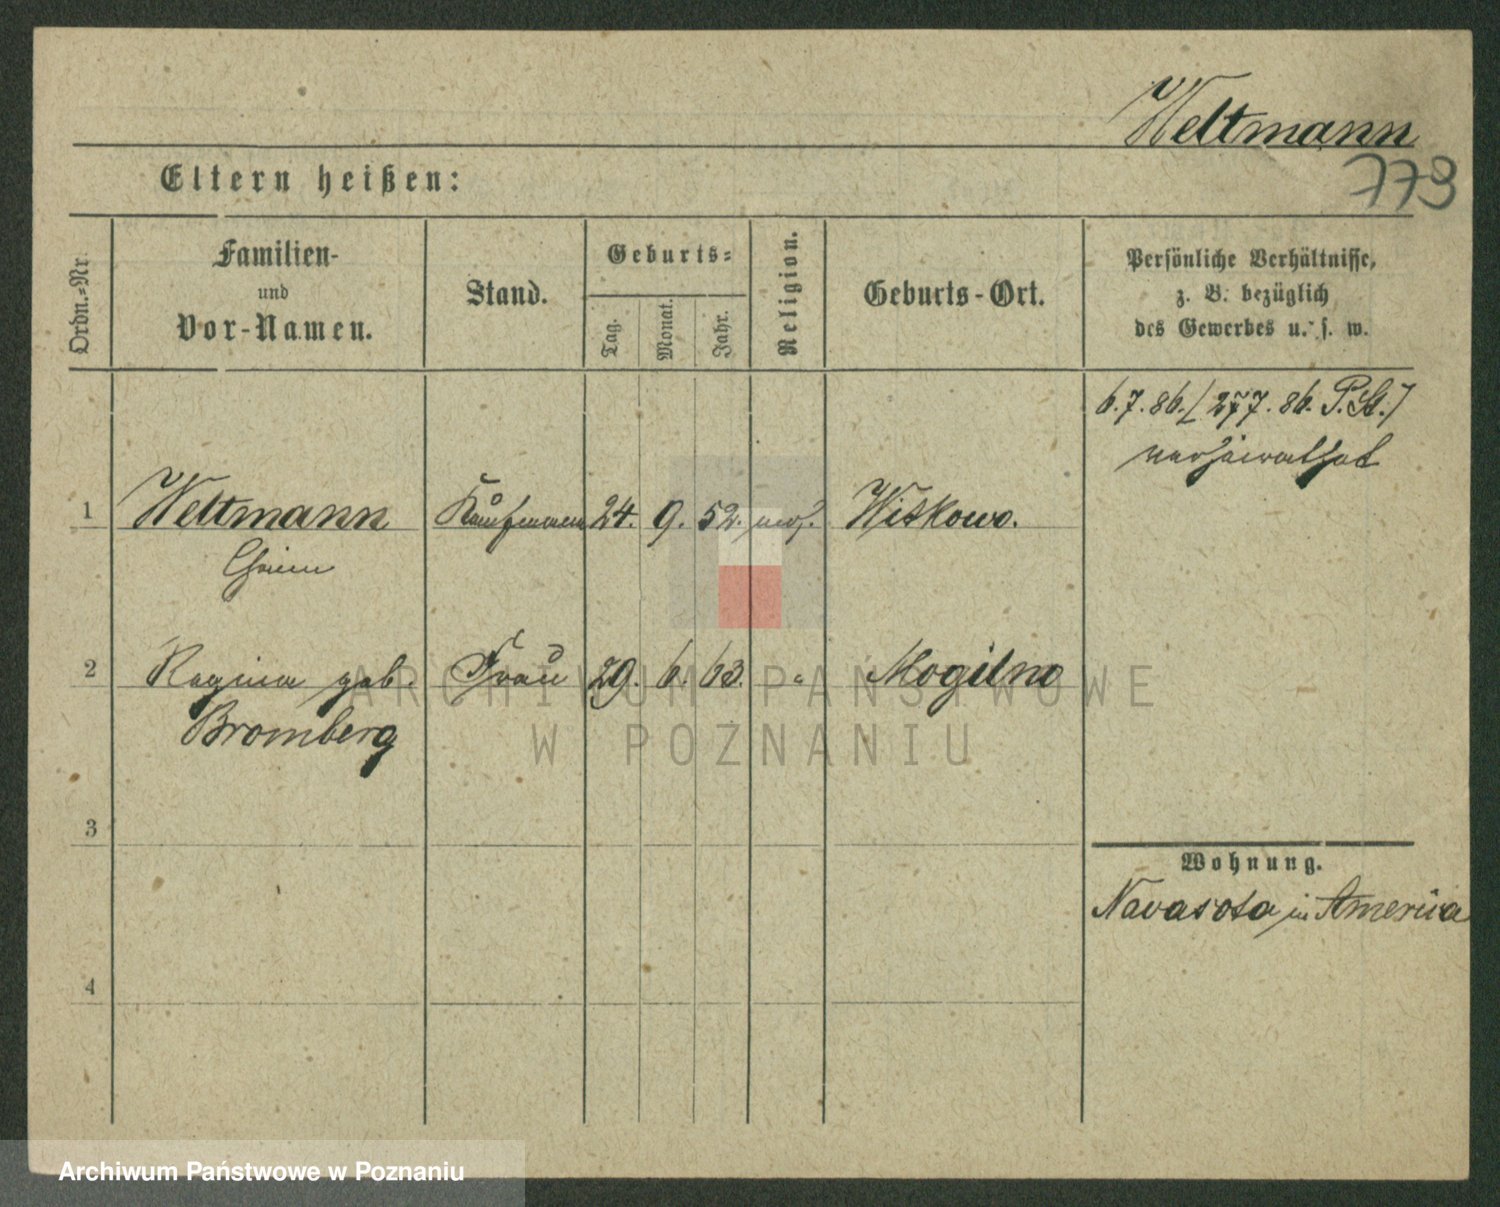 Weltmann
779
Eltern heißen:
Ordn.-Nr.
Familien-
und
Vor-Namen.
Stand.
Geburts-
Tag.
Monat.
Jahr.
Religion.
Geburts-Ort.
Persönliche Verhältnisse,
z. B. bezüglich
des Gewerbes u. s. w.
6.7.86. [277.86. P. St.]
verheirathet
1 Weltmann Kaufmann 24. 9. 52. mos. Witkowo.
Chaim
2 Regina geb. Frau 29. 6. 63. " Mogilno
Bromberg
3
Wohnung.
Navasota in America
4
ARCHIWUM PAŃSTWOWE
W POZNANIU
Archiwum Państwowe w Poznaniu